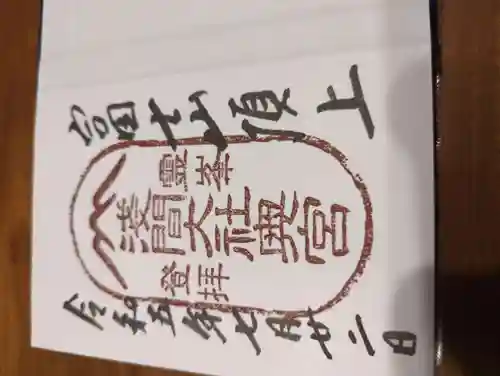 富士山頂上
霊峯
浅間大社奥宮
登拝
令和五年七月廿二日